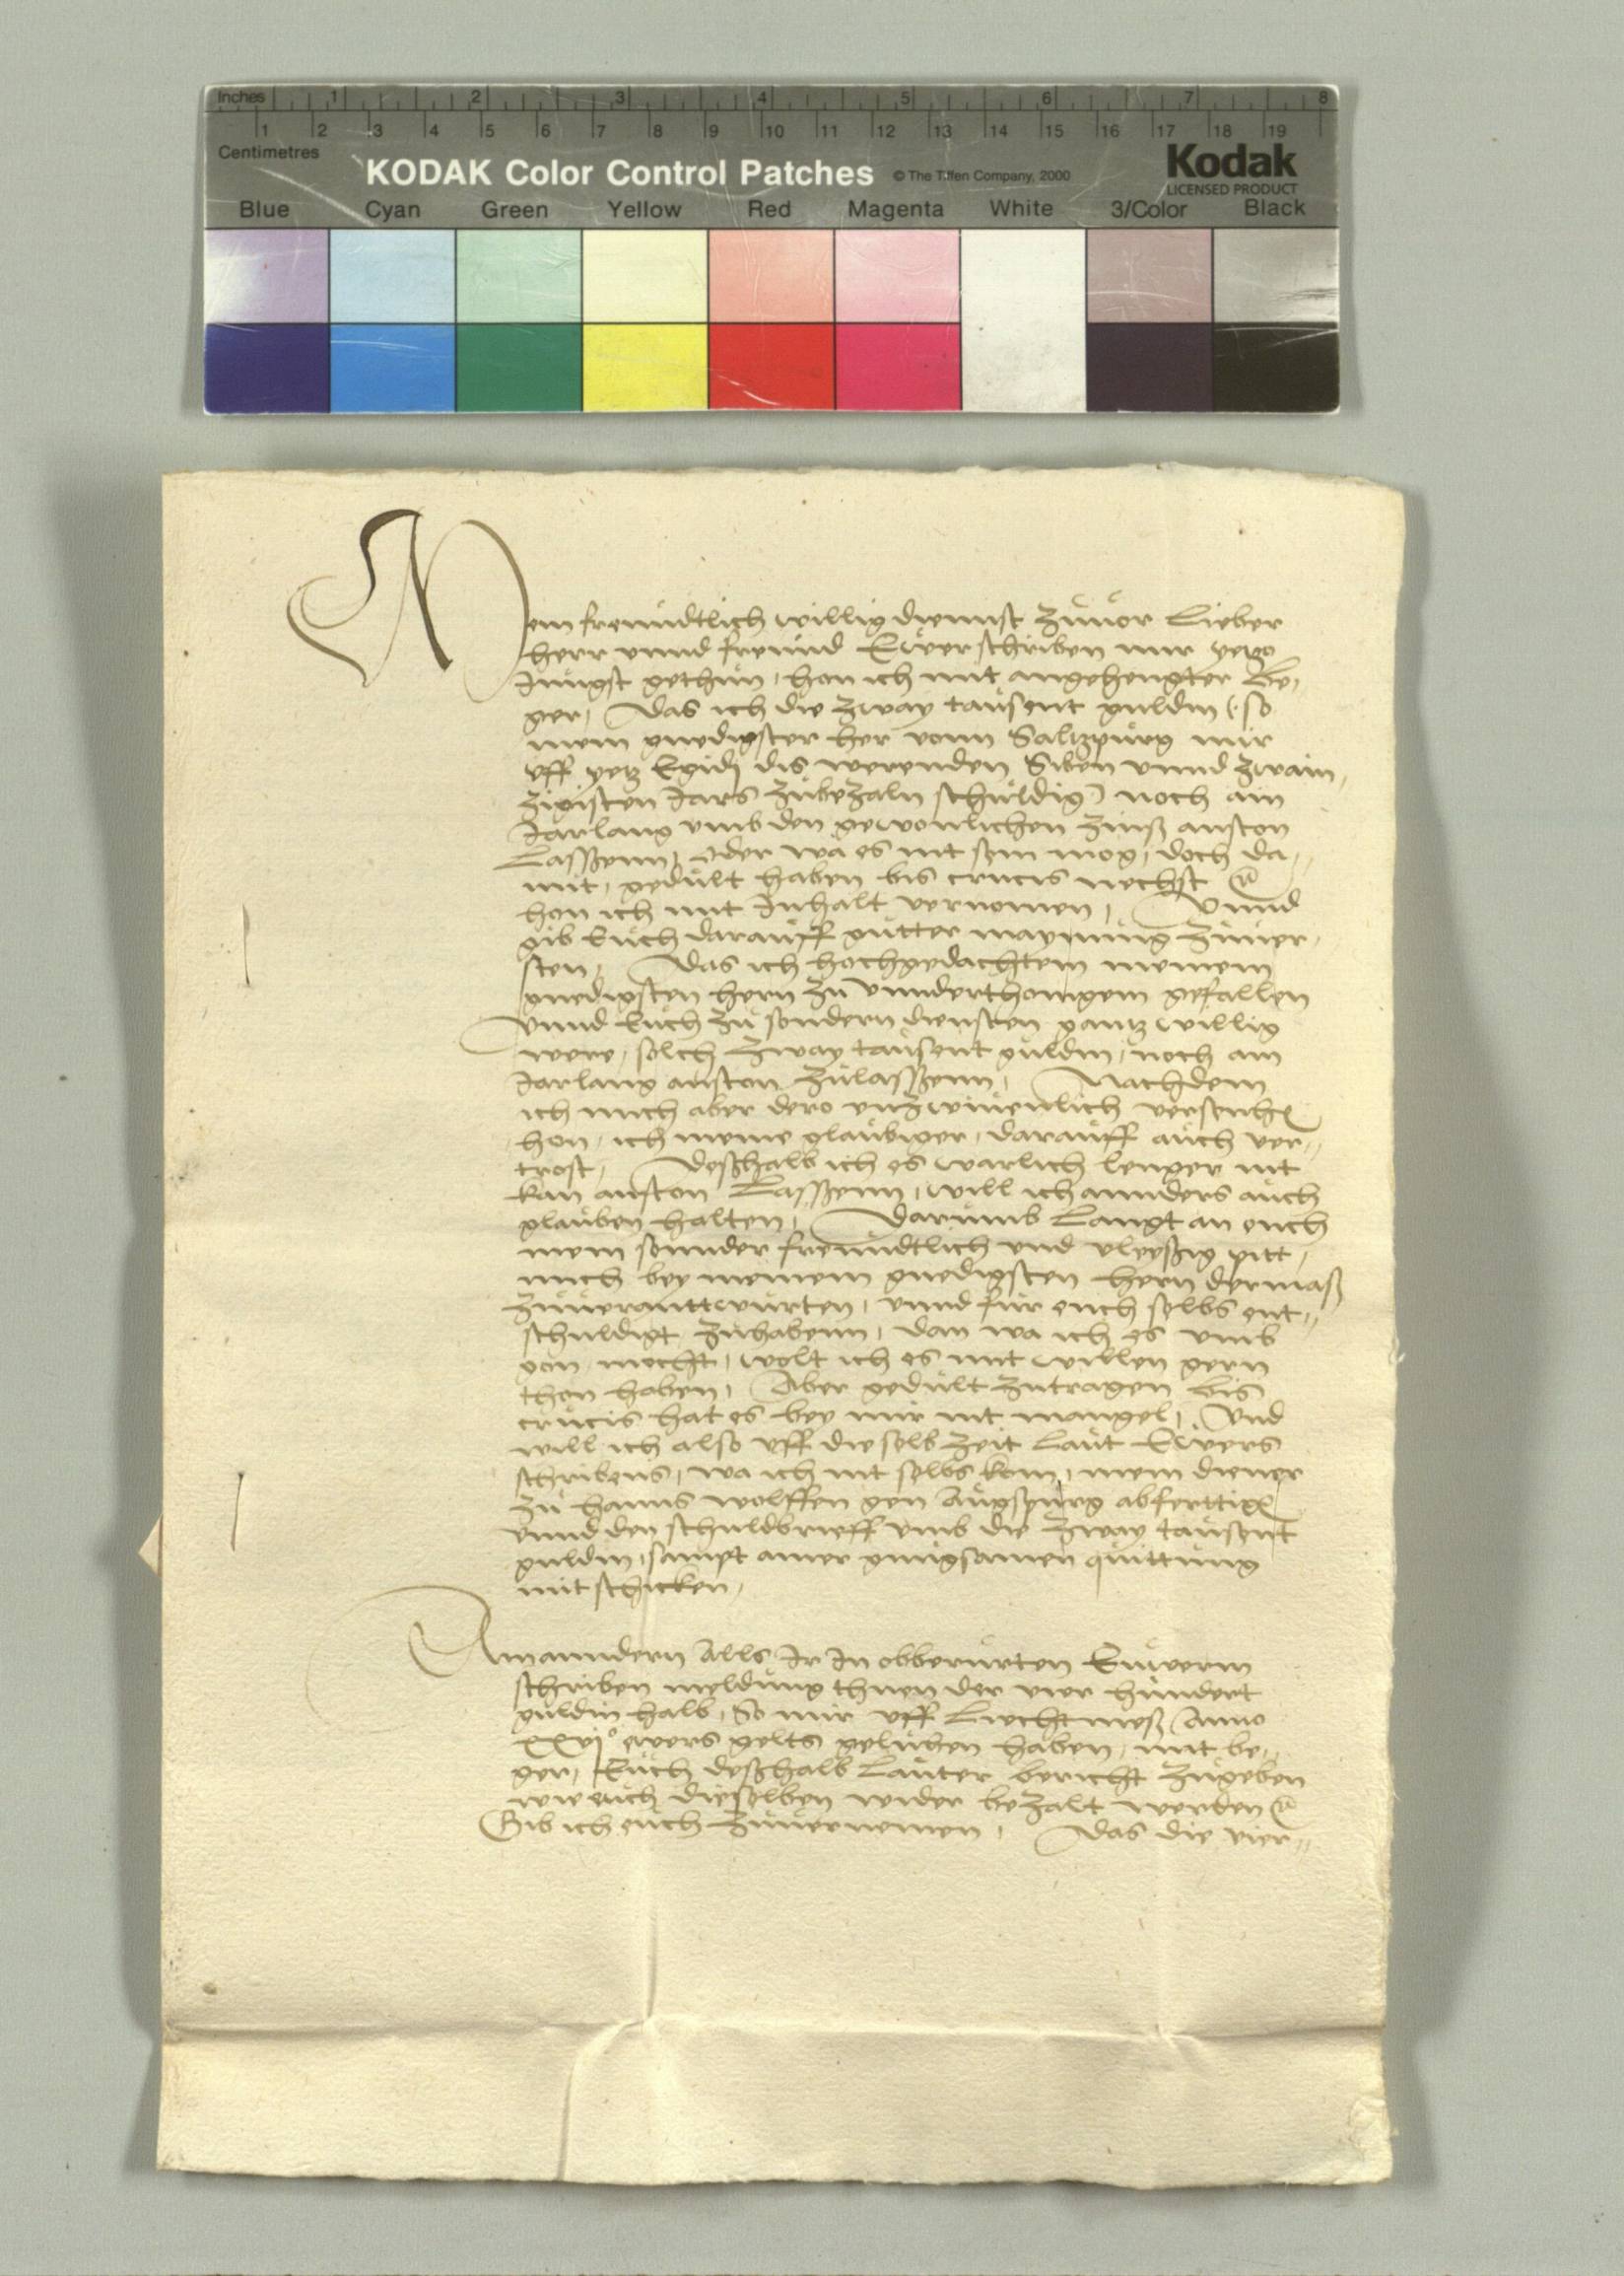 Inches 1 2 3 4 5 6 7 8
1 2 3 4 5 6 7 8 9 10 11 12 13 14 15 16 17 18 19
Centimetres
KODAK Color Control Patches © The Tiffen Company, 2000 Kodak
LICENSED PRODUCT
Blue Cyan Green Yellow Red Magenta White 3/Color Black
Mein freundtlich willig dienst zuuor Lieber
herr vnnd freund Ewer schriben mir yezo
Jungst gethun, hon ich mit angehengter be,
ger, Das ich die zway tausent guldin (so
mein gnedigster her vonn Saltzpurg mir
vff yetz Egidj dis werenden Siben vnnd zwain,
zigisten Jars zubezaln schuldig) noch ain
Jarlang vmb den gewonlichen zinß anston
Lassenn, oder wa es nit sein mog, doch da,
mit, gedult haben bis crucis nechst
hon ich mit Inhalt vernomen, Vnnd
gib Euch darauff gutter maynung zuuer,
sten, Das ich hochgedachtem meinem
gnedigsten hern zu vnnderthonigem gefallen
Vnnd Euch zu sondern diensten gantz willig
were, solch zway tausent guldin, noch ain
Jarlang anston zulassenn, Nachdem
ich mich aber dero vnzwiuenlich versenh
hon, ich meine glaubiger, darauff auch ver,,
trost, Deßhalb ich es warlich lenger nit
kan anston Lassenn, will ich annders auch
glauben halten, Darumb Langt an euch
mein sonnder freundtlich vnd vleyssig pitt,
mich bey meinem gnedigsten hern dermaß
zuuerantwurten, vnnd für euch selbs ent,,
schuldigt zuhabenn, dan wa ich es vmb
gon mecht, wolt ich es mit willen gern
thon haben, Aber gedult zutragen bis
crucis hat es bey mir nit mangel, Vnd
will ich also vff die selb zeit Laut Ewers
schribens, wa ich nit selbs kom, mein diener
zu hanns wolffen gen Augspurg abferttigen
vnnd den schuldbrieff vmb die zway tausent
guldin, sampt ainer gnugsamen quittung
mit schicken,
Am anndern Alls Ir In obberurten Euwerm
schriben meldung thuen der vier hundert
guldin halb, So mir vff Liechtmeß Anno
xxvj° ewers gelts gelühen haben, mit be,
ger, Euch deßhalb Lauter bericht zugeben
wie euch dieselben wider bezalt werden
Gib ich euch zuuernemen, Das die vier,,